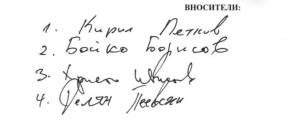 ВНОСИТЕЛИ:
1. Кирил Петков
2. Бойко Борисов
3. Христо
4. Делян Пеевски